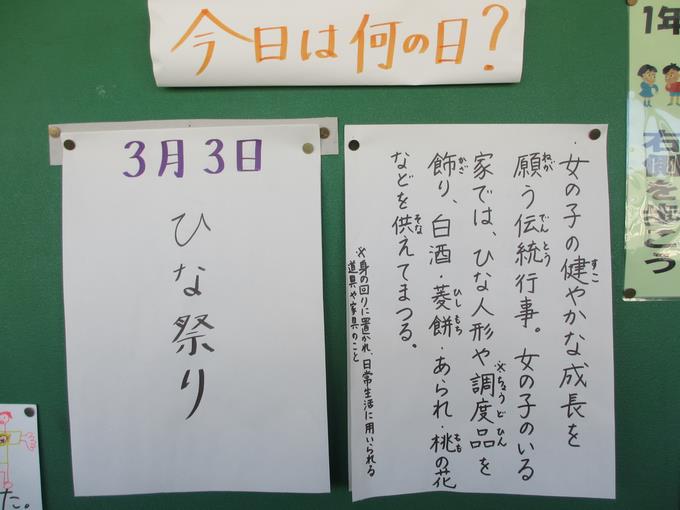 今日は何の日?
3月3日
ひな祭り
・女の子の健やかな成長を
願う伝統行事。女の子のいる
家では、ひな人形や※調度品を
飾り、白酒・菱餅・あられ・桃の花
などを供えてまつる。
※身の回りに置かれ、日常生活に用いられる
道具や家具のこと
すこ
ねが
でんとう
ちょうどひん
かざ
ひしもち
もも
そな
1年
右側を歩こう
た。